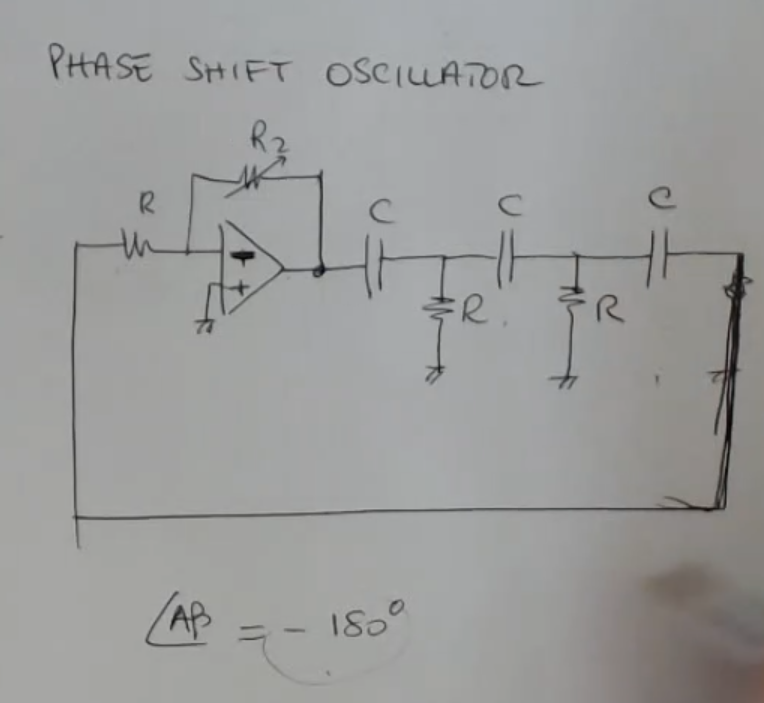 PHASE SHIFT OSCILLATOR
R2
R
C
C
C
-
+
R
R
∠Aβ = - 180°